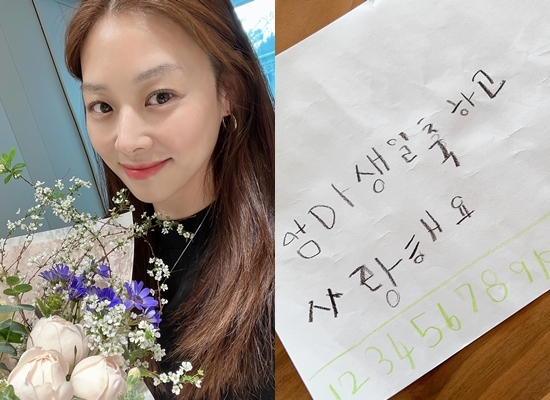 엄마생일축하고
사랑해요
1 2 3 4 5 6 7 8 9 1